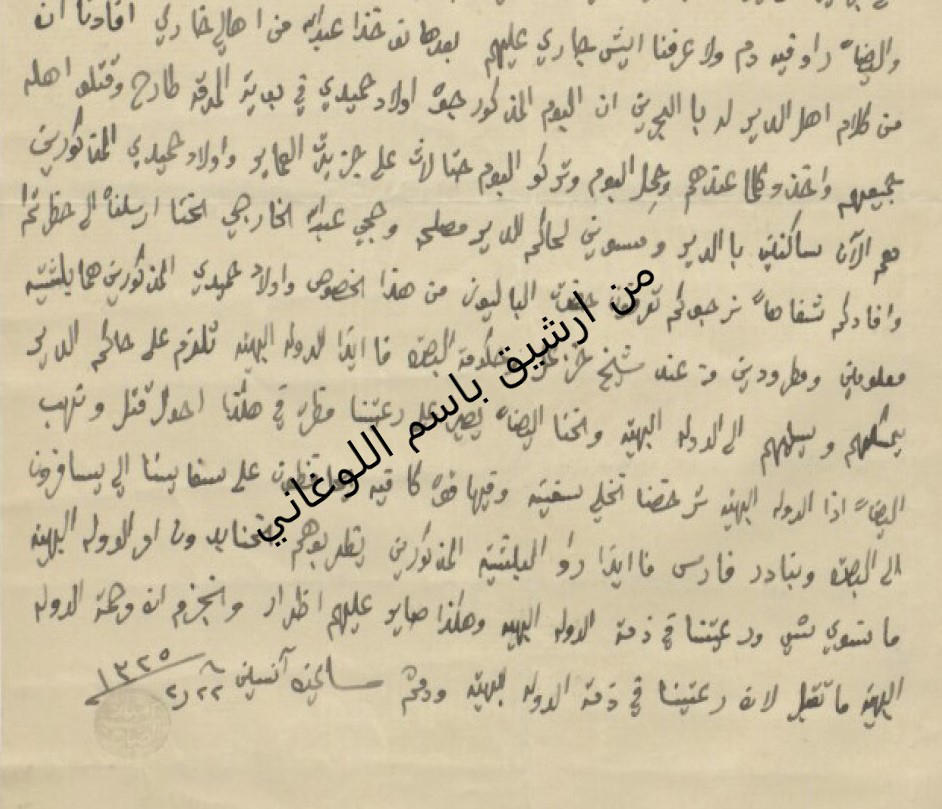 وايضاً راو فيه دم ولا عرفنا ايش جاري عليهم بعدها نوخذا عبدالله من اهالي خاري افادنا ان
من كلام اهل الدير له با البحرين ان البوم المذكور جوه اولاد حميدي في بدية المرقه طارح وقتلو اهله
جميعهم واخذو كلما عندهم وتركو البوم حتا لاث على جزيرة العماير واولاد حميدي المذكورين
هم الآن ساكنين با الدير و منسوبين لحاكم الدير مصلحه وحجي عبدالله الخارجي احنا ارسلناه الى حظرتكم
وافادكم شفاهاً نرجوكم تعرفون حظرة الباليوز من هذا الخصوص واولاد حميدي المذكورين هما بلشتيه
معلومين ومطرودين من عند شيخ خزعل وحكومة البصره فا ايذا الدوله البهيه تلزم على حاكم الدير
يمسكهم ويسلمهم الى الدوله البهيه واحنا ايضاً يصير على رعيتنا مظره في هلكذا احوال قتل ونهب
ايضاً اذا الدوله البهيه ترخصنا انخلي سفينه وفيها قوه كافيه على سفايننا الي يسافرون
الى البصره وبنادر فارس فا ايذا راو البلشتيه المذكورين يظربوهم احنا بدون امر الدوله البهيه
ما نسوي شي ورعيتنا في ذمة الدوله البهيه وهلكذا صاير عليهم اظرار وانجزم ان وهمة الدوله
البهيه ما تقبل لان رعيتنا في ذمة الدوله البهيه ودمتم سالمين آنسين ٢٢ ١٣٢٥
من ارشيق باسم اللوغاني